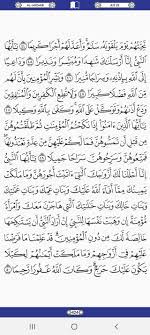 AL-AHZAAB JUZ 22
تَحِيَّتُهُمْ يَوْمَ يَلْقَوْنَهُۥ سَلَٰمٌ وَأَعَدَّ لَهُمْ أَجْرًا كَرِيمًا ٤٤ يَٰٓأَيُّهَا
ٱلنَّبِىُّ إِنَّآ أَرْسَلْنَٰكَ شَٰهِدًا وَمُبَشِّرًا وَنَذِيرًا ٤٥ وَدَاعِيًا
إِلَى ٱللَّهِ بِإِذْنِهِۦ وَسِرَاجًا مُّنِيرًا ٤٦ وَبَشِّرِ ٱلْمُؤْمِنِينَ بِأَنَّ لَهُم
مِّنَ ٱللَّهِ فَضْلًا كَبِيرًا ٤٧ وَلَا تُطِعِ ٱلْكَٰفِرِينَ وَٱلْمُنَٰفِقِينَ
وَدَعْ أَذَىٰهُمْ وَتَوَكَّلْ عَلَى ٱللَّهِ وَكَفَىٰ بِٱللَّهِ وَكِيلًا ٤٨
يَٰٓأَيُّهَا ٱلَّذِينَ ءَامَنُوٓا۟ إِذَا نَكَحْتُمُ ٱلْمُؤْمِنَٰتِ ثُمَّ طَلَّقْتُمُوهُنَّ
مِن قَبْلِ أَن تَمَسُّوهُنَّ فَمَا لَكُمْ عَلَيْهِنَّ مِنْ عِدَّةٍ تَعْتَدُّونَهَا
فَمَتِّعُوهُنَّ وَسَرِّحُوهُنَّ سَرَاحًا جَمِيلًا ٤٩ يَٰٓأَيُّهَا ٱلنَّبِىُّ إِنَّآ
أَحْلَلْنَا لَكَ أَزْوَٰجَكَ ٱلَّٰتِىٓ ءَاتَيْتَ أُجُورَهُنَّ وَمَا مَلَكَتْ
يَمِينُكَ مِمَّآ أَفَآءَ ٱللَّهُ عَلَيْكَ وَبَنَاتِ عَمِّكَ وَبَنَاتِ عَمَّٰتِكَ
وَبَنَاتِ خَالِكَ وَبَنَاتِ خَٰلَٰتِكَ ٱلَّٰتِى هَاجَرْنَ مَعَكَ وَٱمْرَأَةً
مُّؤْمِنَةً إِن وَهَبَتْ نَفْسَهَا لِلنَّبِىِّ إِنْ أَرَادَ ٱلنَّبِىُّ أَن يَسْتَنكِحَهَا
خَالِصَةً لَّكَ مِن دُونِ ٱلْمُؤْمِنِينَ قَدْ عَلِمْنَا مَا فَرَضْنَا
عَلَيْهِمْ فِىٓ أَزْوَٰجِهِمْ وَمَا مَلَكَتْ أَيْمَٰنُهُمْ لِكَيْلَا
يَكُونَ عَلَيْكَ حَرَجٌ وَكَانَ ٱللَّهُ غَفُورًا رَّحِيمًا ٥٠